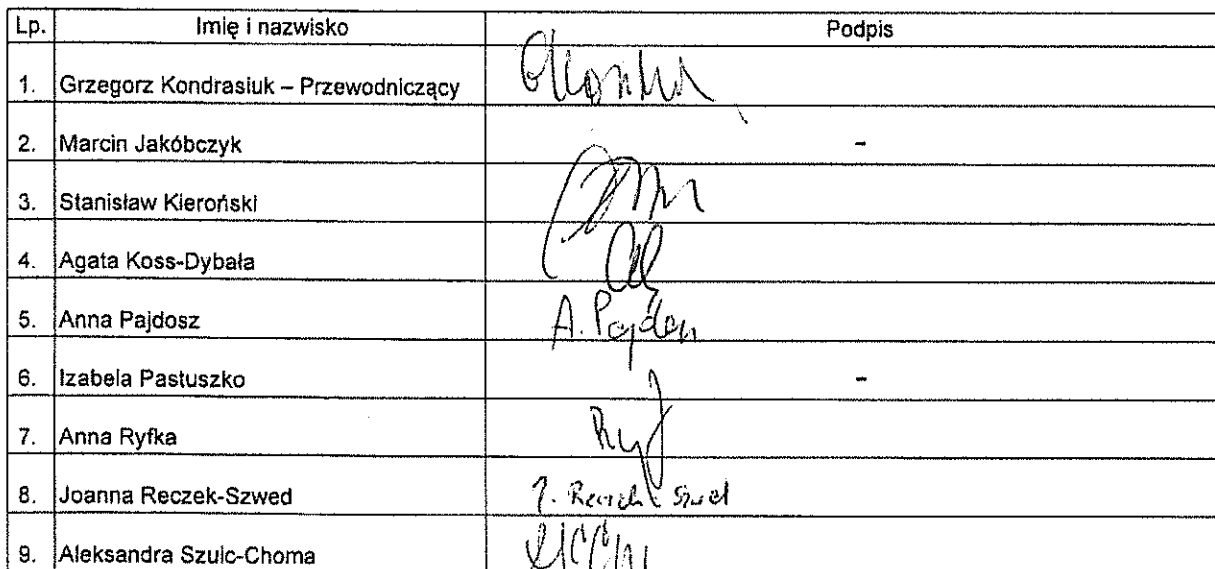 Lp. Imię i nazwisko Podpis
1. Grzegorz Kondrasiuk – Przewodniczący
2. Marcin Jakóbczyk -
3. Stanisław Kieroński
4. Agata Koss-Dybała
5. Anna Pajdosz A. Pajdosz
6. Izabela Pastuszko -
7. Anna Ryfka Ryf
8. Joanna Reczek-Szwed J. Reczek-Szwed
9. Aleksandra Szulc-Choma